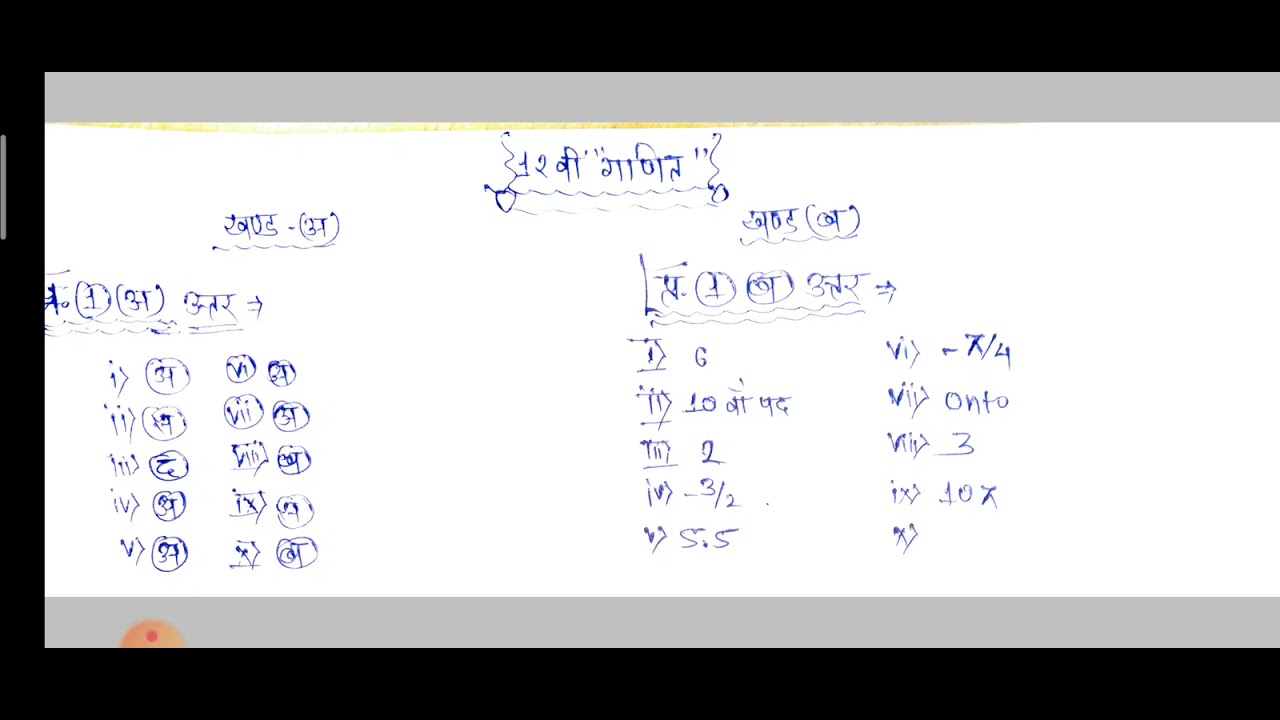 12 वी "गणित"
खण्ड - (अ)
प्र. (1) (अ) उत्तर →
i) अ
ii) स
iii) द
iv) अ
v) अ
vi) अ
vii) अ
viii) ब
ix)
x) ब
खण्ड (ब)
प्र. (1) (ब) उत्तर →
i) 6
ii) 10 वाँ पद
iii) 2
iv) -3/2
v) 5.5
vi) -π/4
vii) onto
viii) 3
ix)
x)